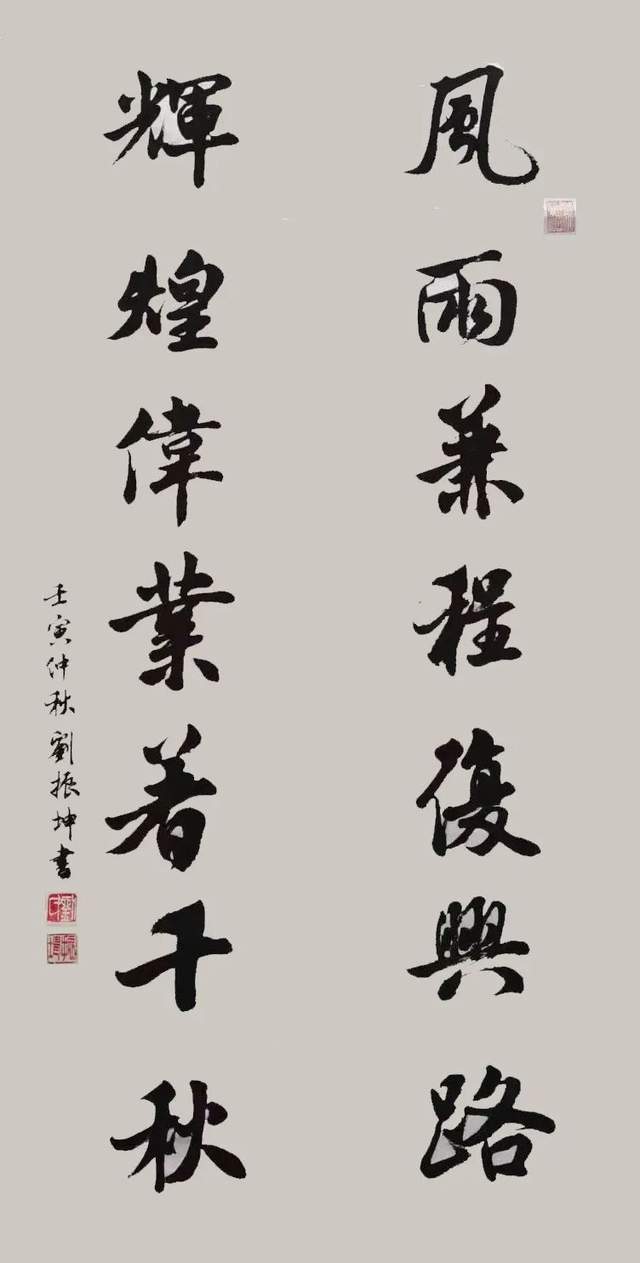 風雨兼程復興路
輝煌偉業著千秋
壬寅仲秋劉振坤書